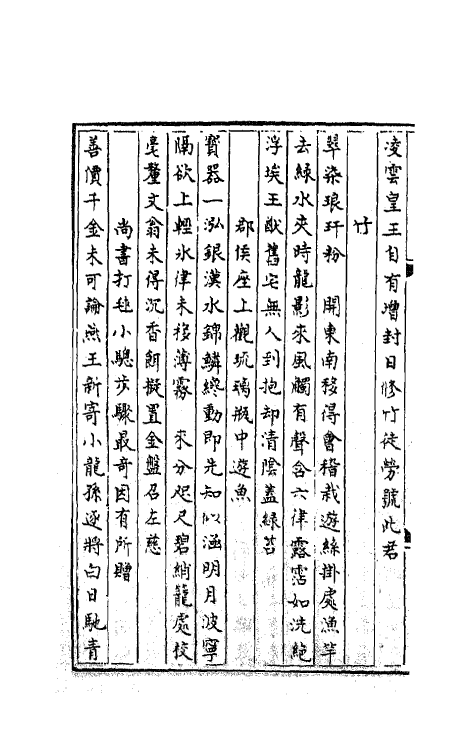 凌雲皇王自有增封日修竹徒勞號此君
竹
翠染琅玕粉　開東南移得會稽栽遊絲掛處漁竿
去綠水夾時龍影來風觸有聲含六律露霑如洗絶
浮埃王猷舊宅無人到抱却清陰蓋緑苔
郡侯座上觀琉璃瓶中遊魚
寳器一泓銀漢水錦鱗纔動即先知似涵明月波寧
隔欲上輕氷律未移薄霧　來分咫尺碧綃籠處校
毫釐文翁未得沉香餌擬置金盤召左慈
尚書打毬小驄步驟最奇因有所贈
善價千金未可論燕王新寄小龍孫逐將白日馳青